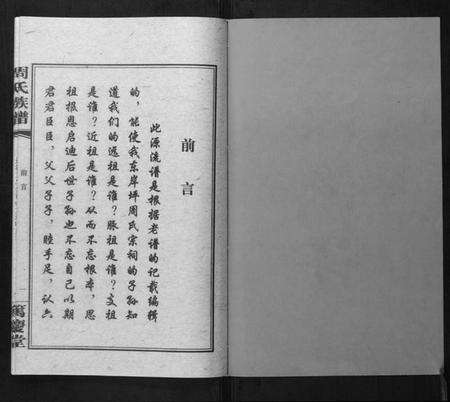 前言
此源流谱是根据老谱的记载编辑
的，能使我东岸坪周氏宗祠的子孙知
道我们的远祖是谁？脉祖是谁？支祖
是谁？近祖是谁？从而不忘根本，思
祖根恩启迪后世子孙也不忘自己以期
君君臣臣，父父子子，睦手足，认六
周氏族谱
前言
笃庆堂